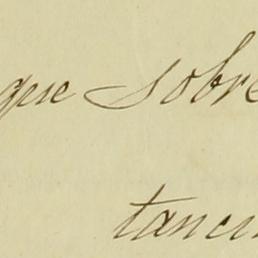 que sobre
tanci